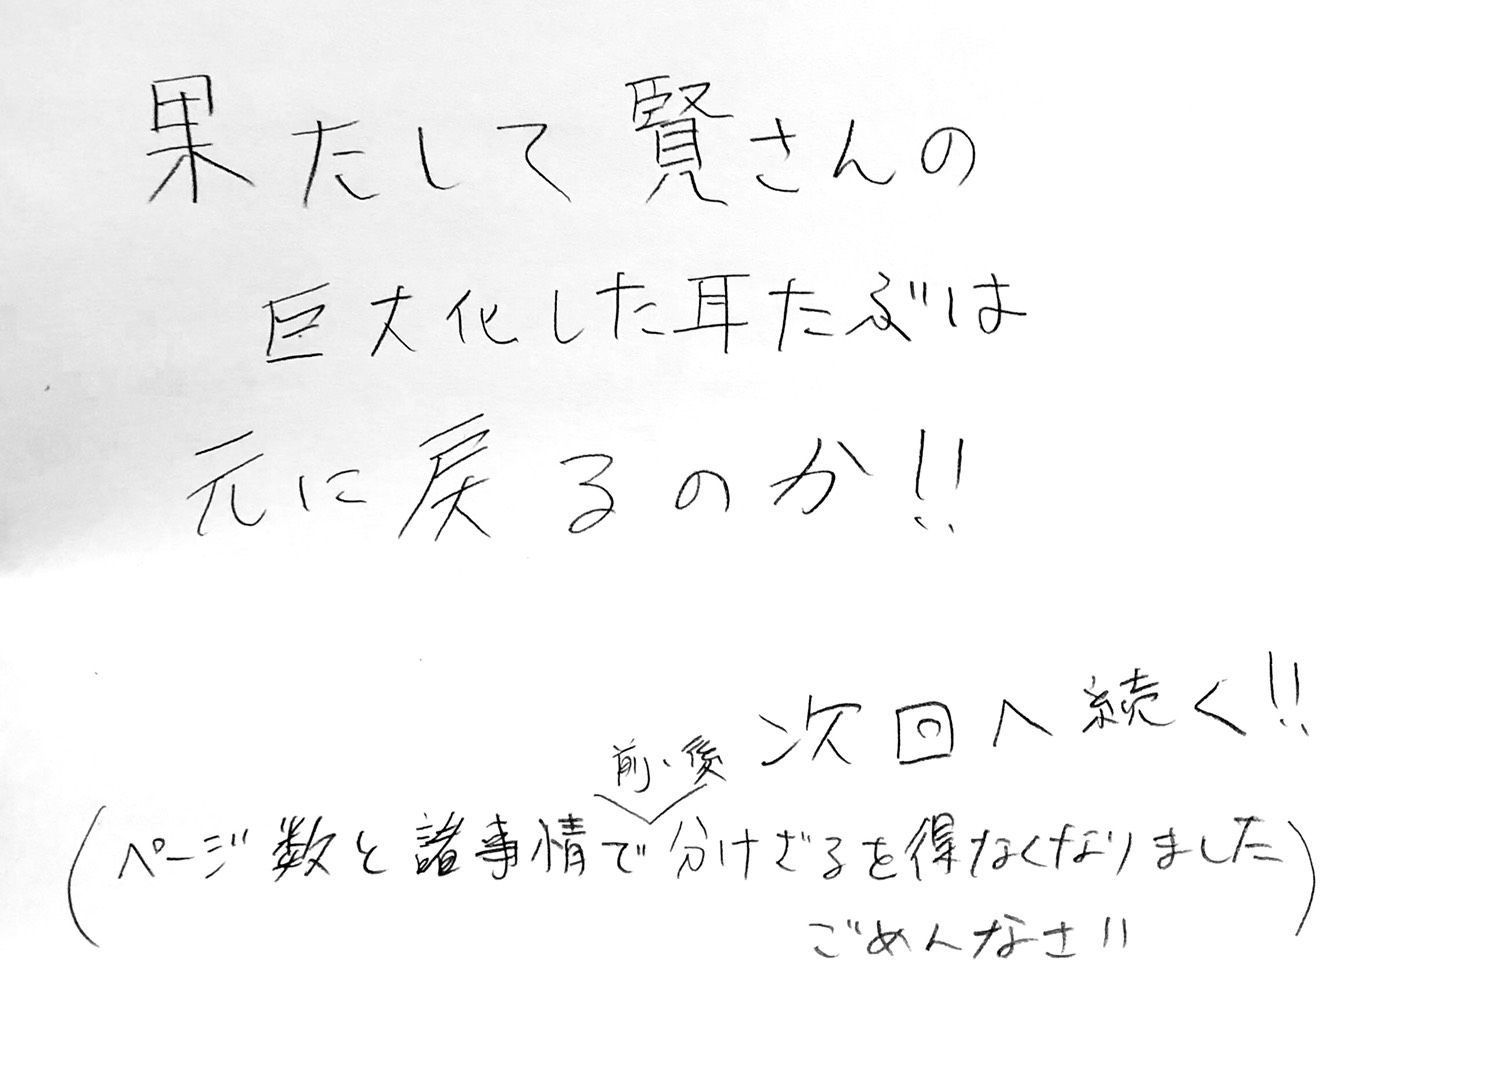 果たして賢さんの
巨大化した耳たぶは
元に戻るのか!!
次回へ続く!!
前・後
(ページ数と諸事情で分けざるを得なくなりました)
ごめんなさい